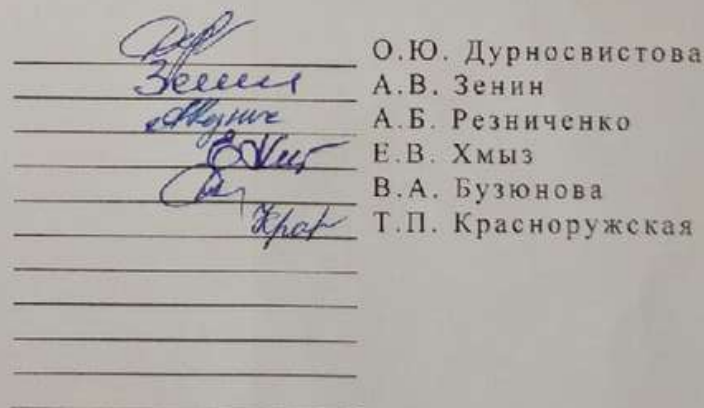 О.Ю. Дурносвистова
Зенин А.В. Зенин
А.Б. Резниченко
Е.В. Хмыз
В.А. Бузюнова
Т.П. Красноружская